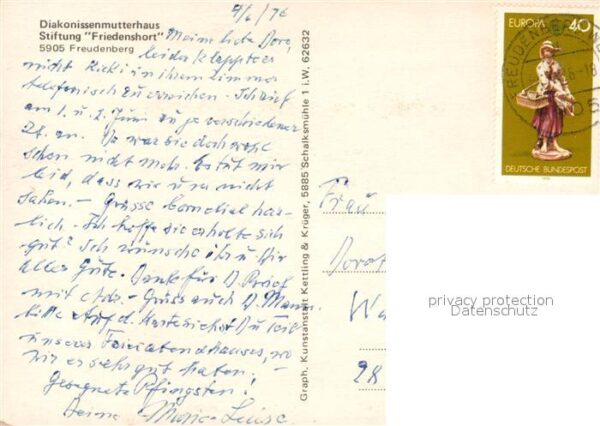 Diakonissenmutterhaus
Stiftung "Friedenshort"
5905 Freudenberg
4/6/76
Meine liebe Dora,
leider klappte es
nicht Kicki in ihrem Zimmer
telefonisch zu erreichen. Ich rief
am 1. u. 2. Juni zu je verschiedener
Zt. an. Da war sie doch
schon nicht mehr. Es tut mir
leid, dass wir uns nicht
sahen. - Grüsse
lich. Ich hoffe sie erholte sich
gut? Ich wünsche ihr u. Dir
alles Gute. Danke für D. Brief
mit - Gruss auch D. Mann.
bitte Auf d. Karte siehst Du Teil
unseres Feierabendhauses, wo
wir es sehr gut haben.
Gesegnete Pfingsten!
Deine Marie-Luise
Graph. Kunstanstalt Kettling & Krüger, 5885 Schalksmühle 1 i.W. 62632
EUROPA 40
DEUTSCHE BUNDESPOST
FREUDENBERG
Frau
Dorot
28
privacy protection
Datenschutz